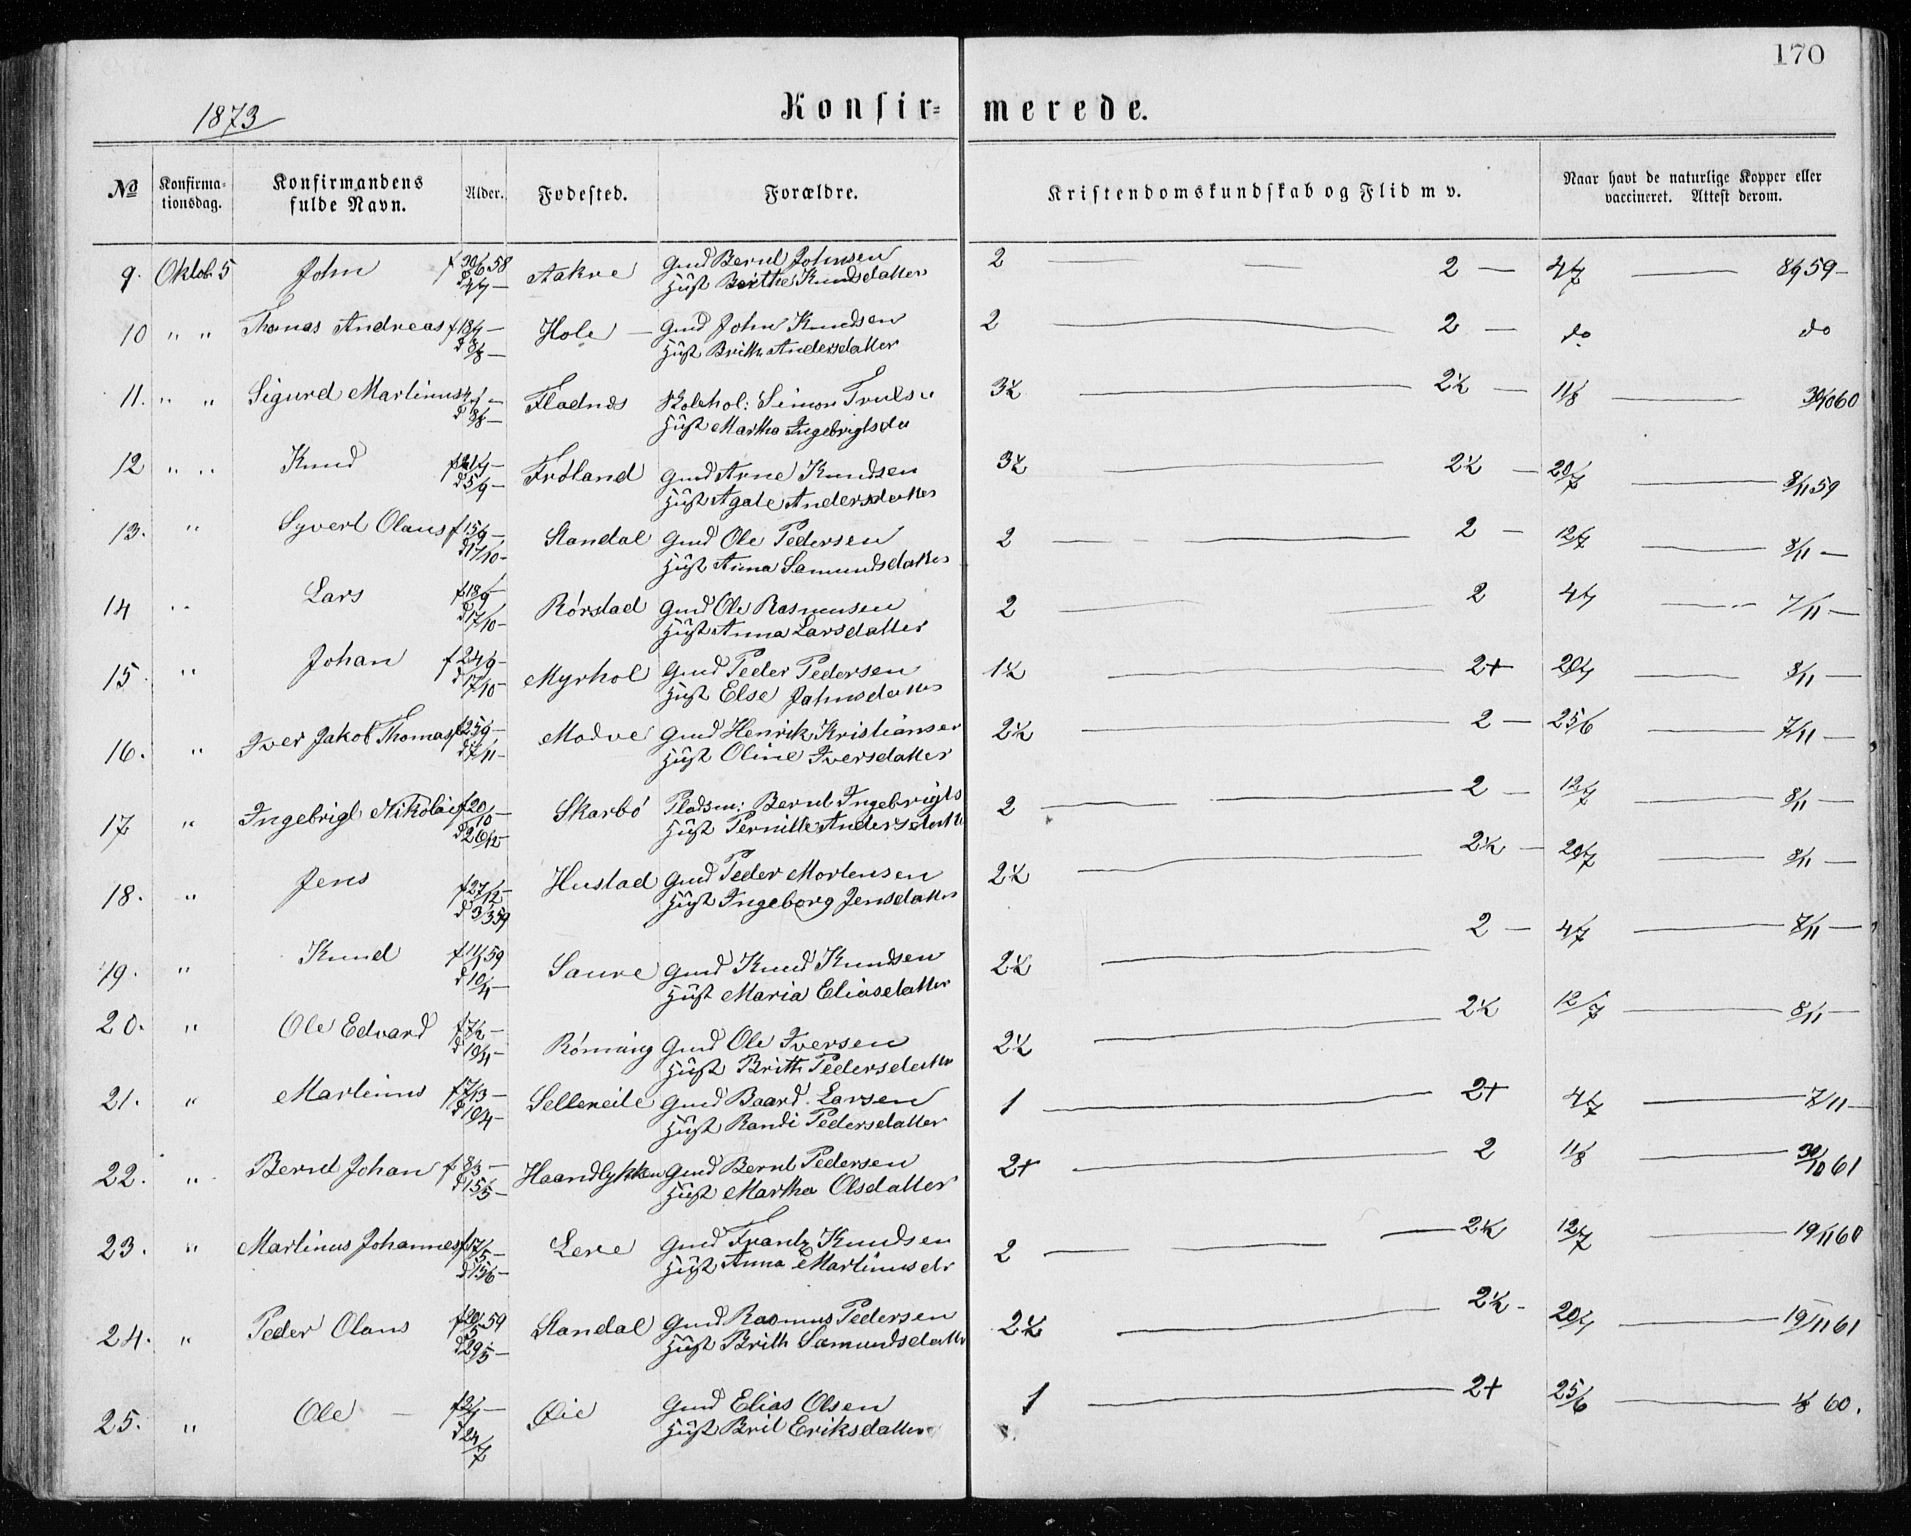 170
1873
Konfir= merede.
No Konfirma-tionsdag. Konfirmandens fulde Navn. Alder. Fødested. Forældre. Kristendomskundskab og Flid m v. Naar havt de naturlige Kopper eller vaccineret. Attest derom.
9. Oktob. 5 John f 30/6 58 Aakre Gmd Bernt Johnsen 2 2 4/7 8/11 59
Hust Berthe Knudsdatter
10 " " Thomas Andreas Hole Gmd John Knudsen 2 2 do do
d 8/8 Hust Brithe Andersdatter
11. " " Sigurd Martinus Fladnes Simon Truls 3½ 2½ 11/8
d 8/8 Hust Martha Ingebrigtsdr
12 " " Knud Fróland Gmd Arne Knudsen 3½ 2½ 20/7 8/11 59
d 5/9 Hust Agate Andersdatter
13. " Syvert Olaus f 15/9 Standal Gmd Ole Pedersen 2 2 12/7 8/11
d 17/10 Hust Anna Samundsdatter
14 " Lars f 18/9 Rórstad Gmd Ole Rasmusen 2 2 4/7 7/11
d 17/10 Hust Anna Larsdatter
15 " Johan f 24/9 Myrhol Gmd Peder Pedersen 1½ 2+ 20/7 8/11
d 17/10 Hust Else Jahnsdatter
16. " Iver Jakob Thomas f 25/9 Modve Gmd Henrik Kristiansen 2½ 2 25/6 7/11
d 7/11 Hust Oline Iversdatter
17 " Ingebrigt Nikolai f 20/10 Skarbó Pladsm: Bernt Ingebrigts 2 2 12/7 8/11
d 26/12 Hust Pernille Andersdatt
18. " Jens f 27/12 Hustad Gmd Peder Mortensen 2½ 2½ 20/7 8/11
d 3/3 59 Hust Ingeborg Jensdatter
19. " Knud f 11/1 59 Saure Gmd Knud Knudsen 2½ 2 4/7 7/11
d 10/4 Hust Maria Eliasdatter
20. " Ole Edvard f 7/2 Gmd Ole Iversen 2½ 2½ 12/7 8/11
d 19/4 Hust Brith Pedersdatter
21. " Martinus f 7/3 Gmd Baard Larsen 1 2+ 4/7 7/11
d 19/4 Hust Randi Pedersdatter
22. " Bernt Johan f 8/3 Haandlykken Gmd Bernt Pedersen 2+ 2 11/8 30/10 61
d 15/5 Hust Martha Olsdatter
23. " Martinus Johannes f 17/5 Leve Gmd Frantz Knudsen 2 2½ 12/7 19/11 60
d 15/6 Hust Anna Martinusdr
24. " Peder Olaus f 20/5 59 Standal Gmd Rasmus Pedersen 2½ 2½ 20/7 19/11 61
d 29/5 Hust Brith Samundsdatter
25. " Ole Øie Gmd Elias Olsen 1 2+ 25/6 60.
d 24/7 Hust Brit Eriksdatter